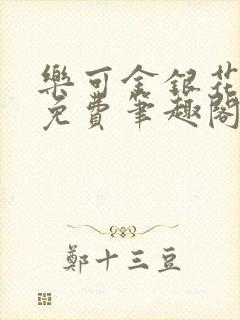 樂可金銀花
免費筆趣閣
鄭十三豆